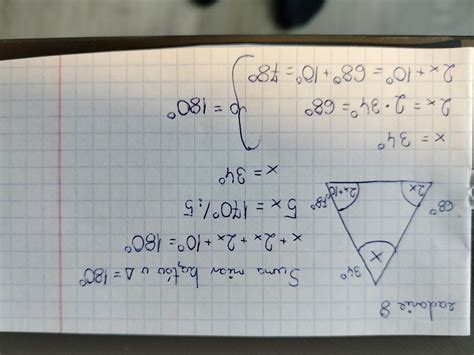 zadanie 8
Suma miar kątów w Δ = 180°
x + 2x + 2x + 10° = 180°
5x = 170° /:5
x = 34°
34°
x
68°
2x
2x+10°
78°
x = 34°
2x = 2·34° = 68°
2x + 10° = 68° + 10° = 78°
= 180°